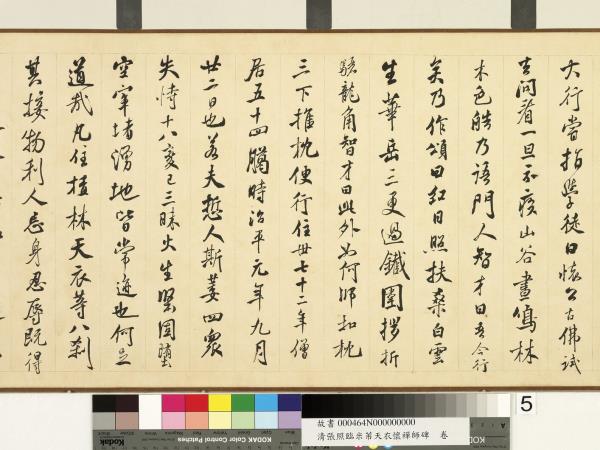 大行嘗指學徒曰懷公古佛試
去問看一旦示疾山谷晝鳴林
木色皓乃語門人智才曰吾今行
矣乃作頌曰紅日照扶桑白雲
生華岳三更過鐵圍拶折
驪龍角智才曰此外如何師扣枕
三下推枕便行住世七十二年僧
居五十四臘時治平元年九月
廿二日也若夫哲人斯萎四眾
失恃十八變已三昧火生堅固墮
空窣堵湧地皆常迹也何足
道哉凡住植林天衣等八剎
其接物利人忘身忍辱既得
5
KODAK Color Control Patches
Kodak
故書 000464N000000000
清張照臨米芾天衣懷禪師碑 卷